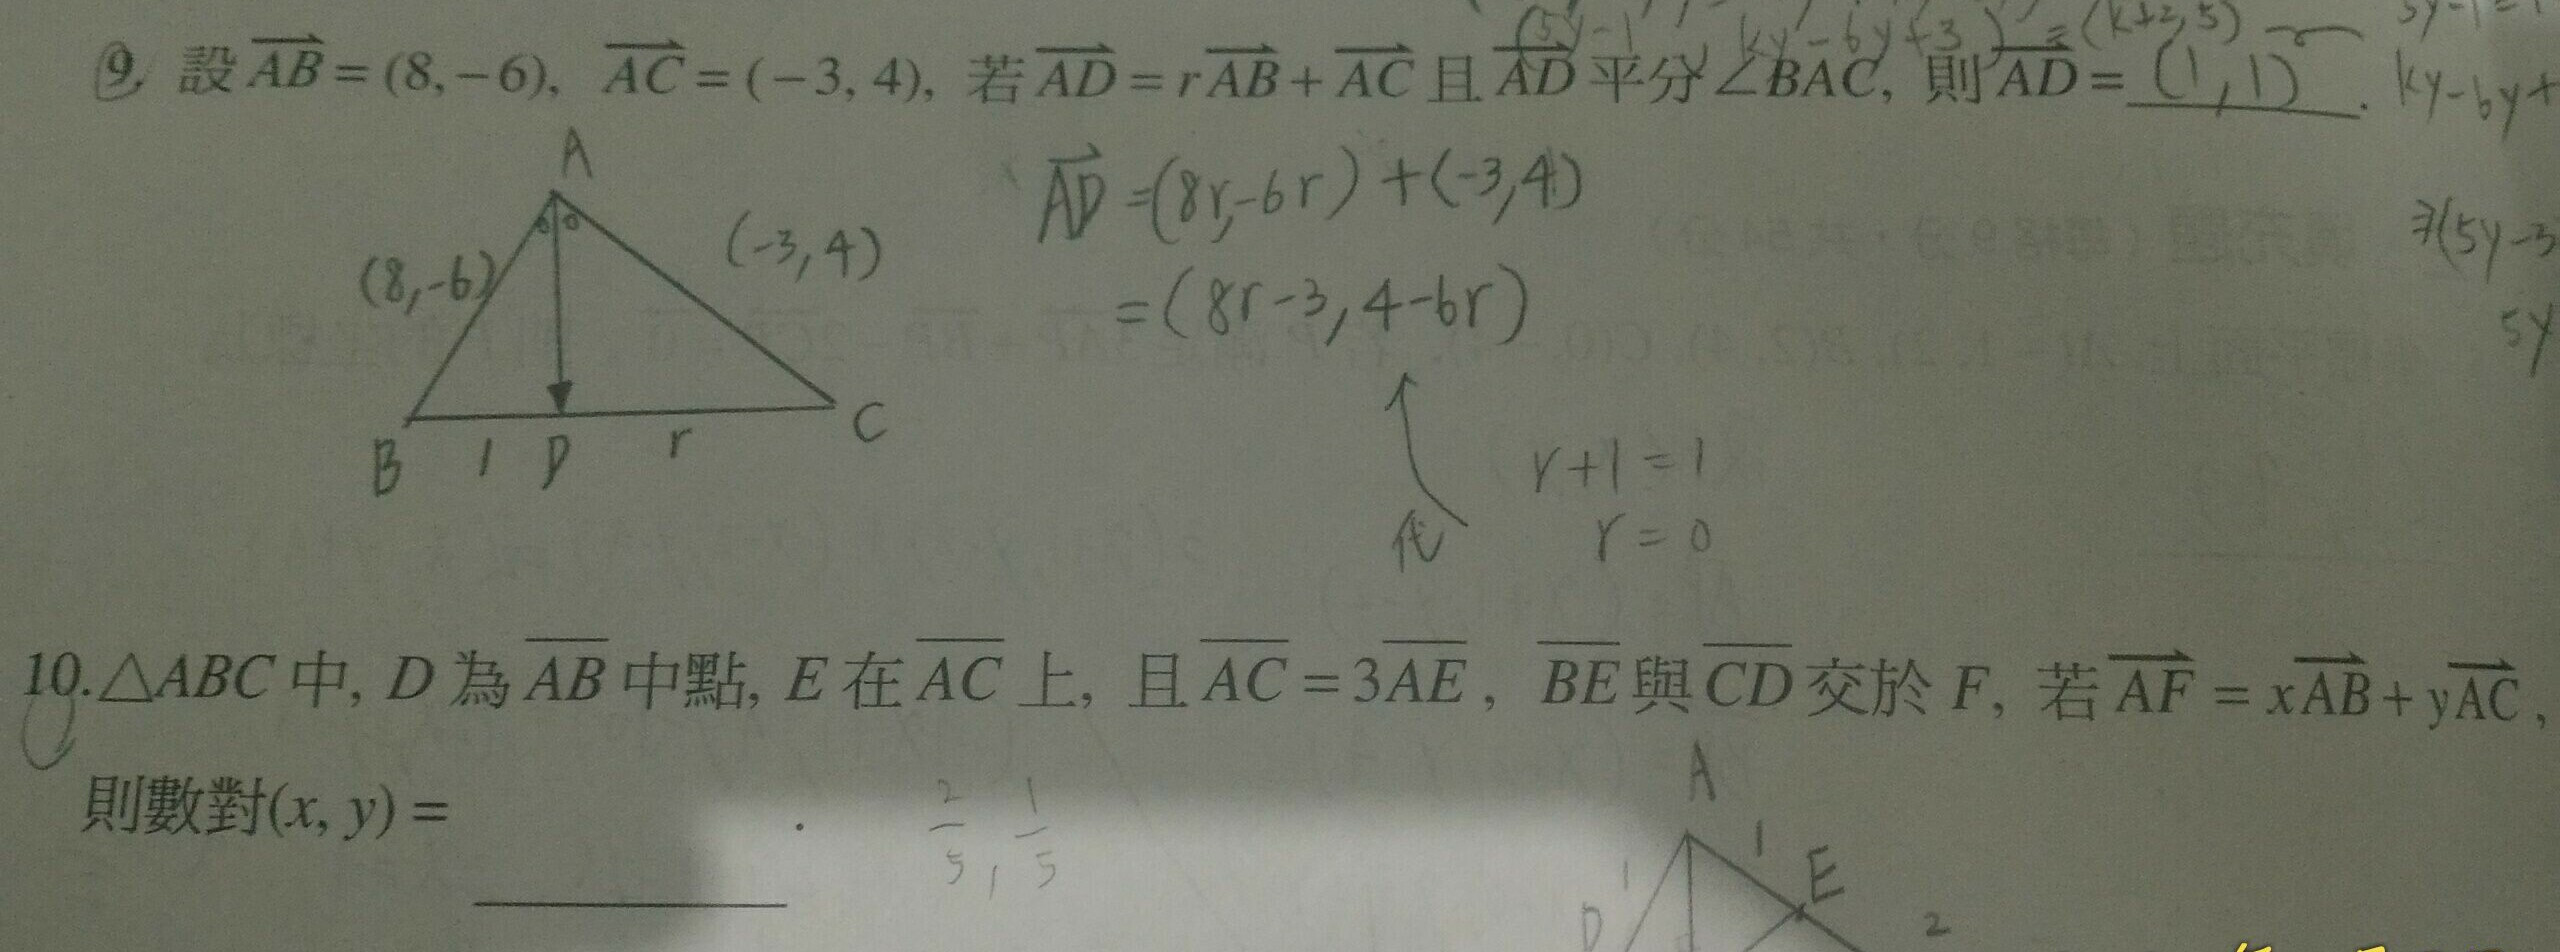 (5y-1, ky-6y+3) = (k+2,5)
5y-1=
9. 設AB=(8,-6), AC=(-3,4), 若AD=rAB+AC且AD平分∠BAC, 則AD=(1,1).
ky-6y+
A
AD=(8r,-6r)+(-3,4)
(8,-6)
(-3,4)
=(8r-3,4-6r)
∋(5y-3
5y
B 1 D r C
r+1=1
代 r=0
10.△ABC中, D為AB中點, E在AC上, 且AC=3AE, BE與CD交於F, 若AF=xAB+yAC,
則數對(x, y)= .
2/5, 1/5
A
1
1 E
D 2